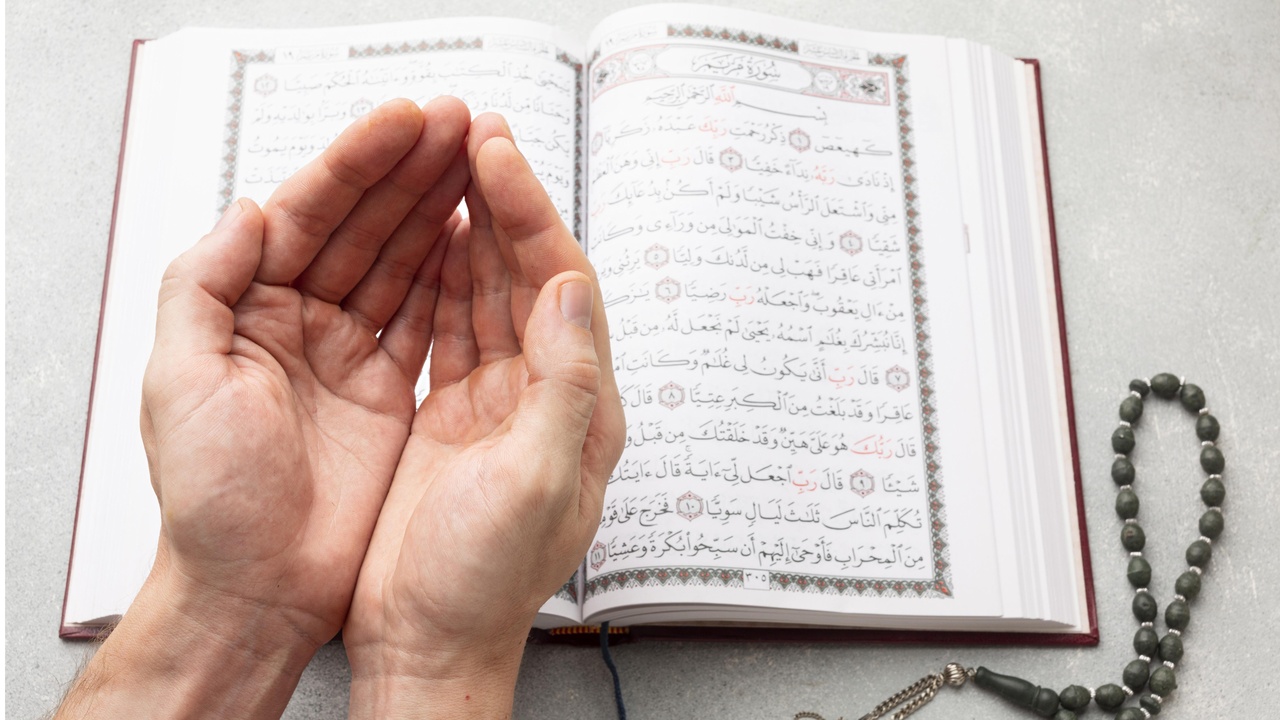 سُورَةُ مَرْيَمَ
بِسْمِ ٱللَّهِ ٱلرَّحْمَٰنِ ٱلرَّحِيمِ
كٓهيعٓصٓ ١ ذِكْرُ رَحْمَتِ رَبِّكَ عَبْدَهُۥ زَكَرِيَّآ
إِذْ نَادَىٰ رَبَّهُۥ نِدَآءً خَفِيًّا ٣ قَالَ رَبِّ إِنِّى وَهَنَ
مِنِّى وَٱشْتَعَلَ ٱلرَّأْسُ شَيْبًا وَلَمْ أَكُنۢ بِدُعَآئِكَ
شَقِيًّا ٤ وَإِنِّى خِفْتُ ٱلْمَوَٰلِىَ مِن وَرَآءِى
ٱمْرَأَتِى عَاقِرًا فَهَبْ لِى مِن لَّدُنكَ وَلِيًّا ٥ يَرِثُنِى
مِنْ ءَالِ يَعْقُوبَ وَٱجْعَلْهُ رَبِّ رَضِيًّا ٦
إِنَّا نُبَشِّرُكَ بِغُلَٰمٍ ٱسْمُهُۥ يَحْيَىٰ لَمْ نَجْعَل لَّهُۥ مِن قَبْلُ
٧ قَالَ رَبِّ أَنَّىٰ يَكُونُ لِى غُلَٰمٌ وَكَانَتِ
عَاقِرًا وَقَدْ بَلَغْتُ مِنَ ٱلْكِبَرِ عِتِيًّا ٨ قَالَ
قَالَ رَبُّكَ هُوَ عَلَىَّ هَيِّنٌ وَقَدْ خَلَقْتُكَ مِن قَبْلُ
شَيْـًٔا ٩ قَالَ رَبِّ ٱجْعَل لِّىٓ ءَايَةً قَالَ ءَايَتُكَ
تُكَلِّمَ ٱلنَّاسَ ثَلَٰثَ لَيَالٍ سَوِيًّا ١٠ فَخَرَجَ عَلَىٰ
مِنَ ٱلْمِحْرَابِ فَأَوْحَىٰٓ إِلَيْهِمْ أَن سَبِّحُوا۟ بُكْرَةً وَعَشِيًّا ١١
٣٠٥
يَٰيَحْيَىٰ خُذِ ٱلْكِتَٰبَ بِقُوَّةٍ وَءَاتَيْنَٰهُ ٱلْحُكْمَ صَبِيًّا ١٢
وَحَنَانًا مِّن لَّدُنَّا وَبَرًّۢا بِوَٰلِدَيْهِ وَلَمْ
يَكُن وَيَوْمَ يَمُوتُ